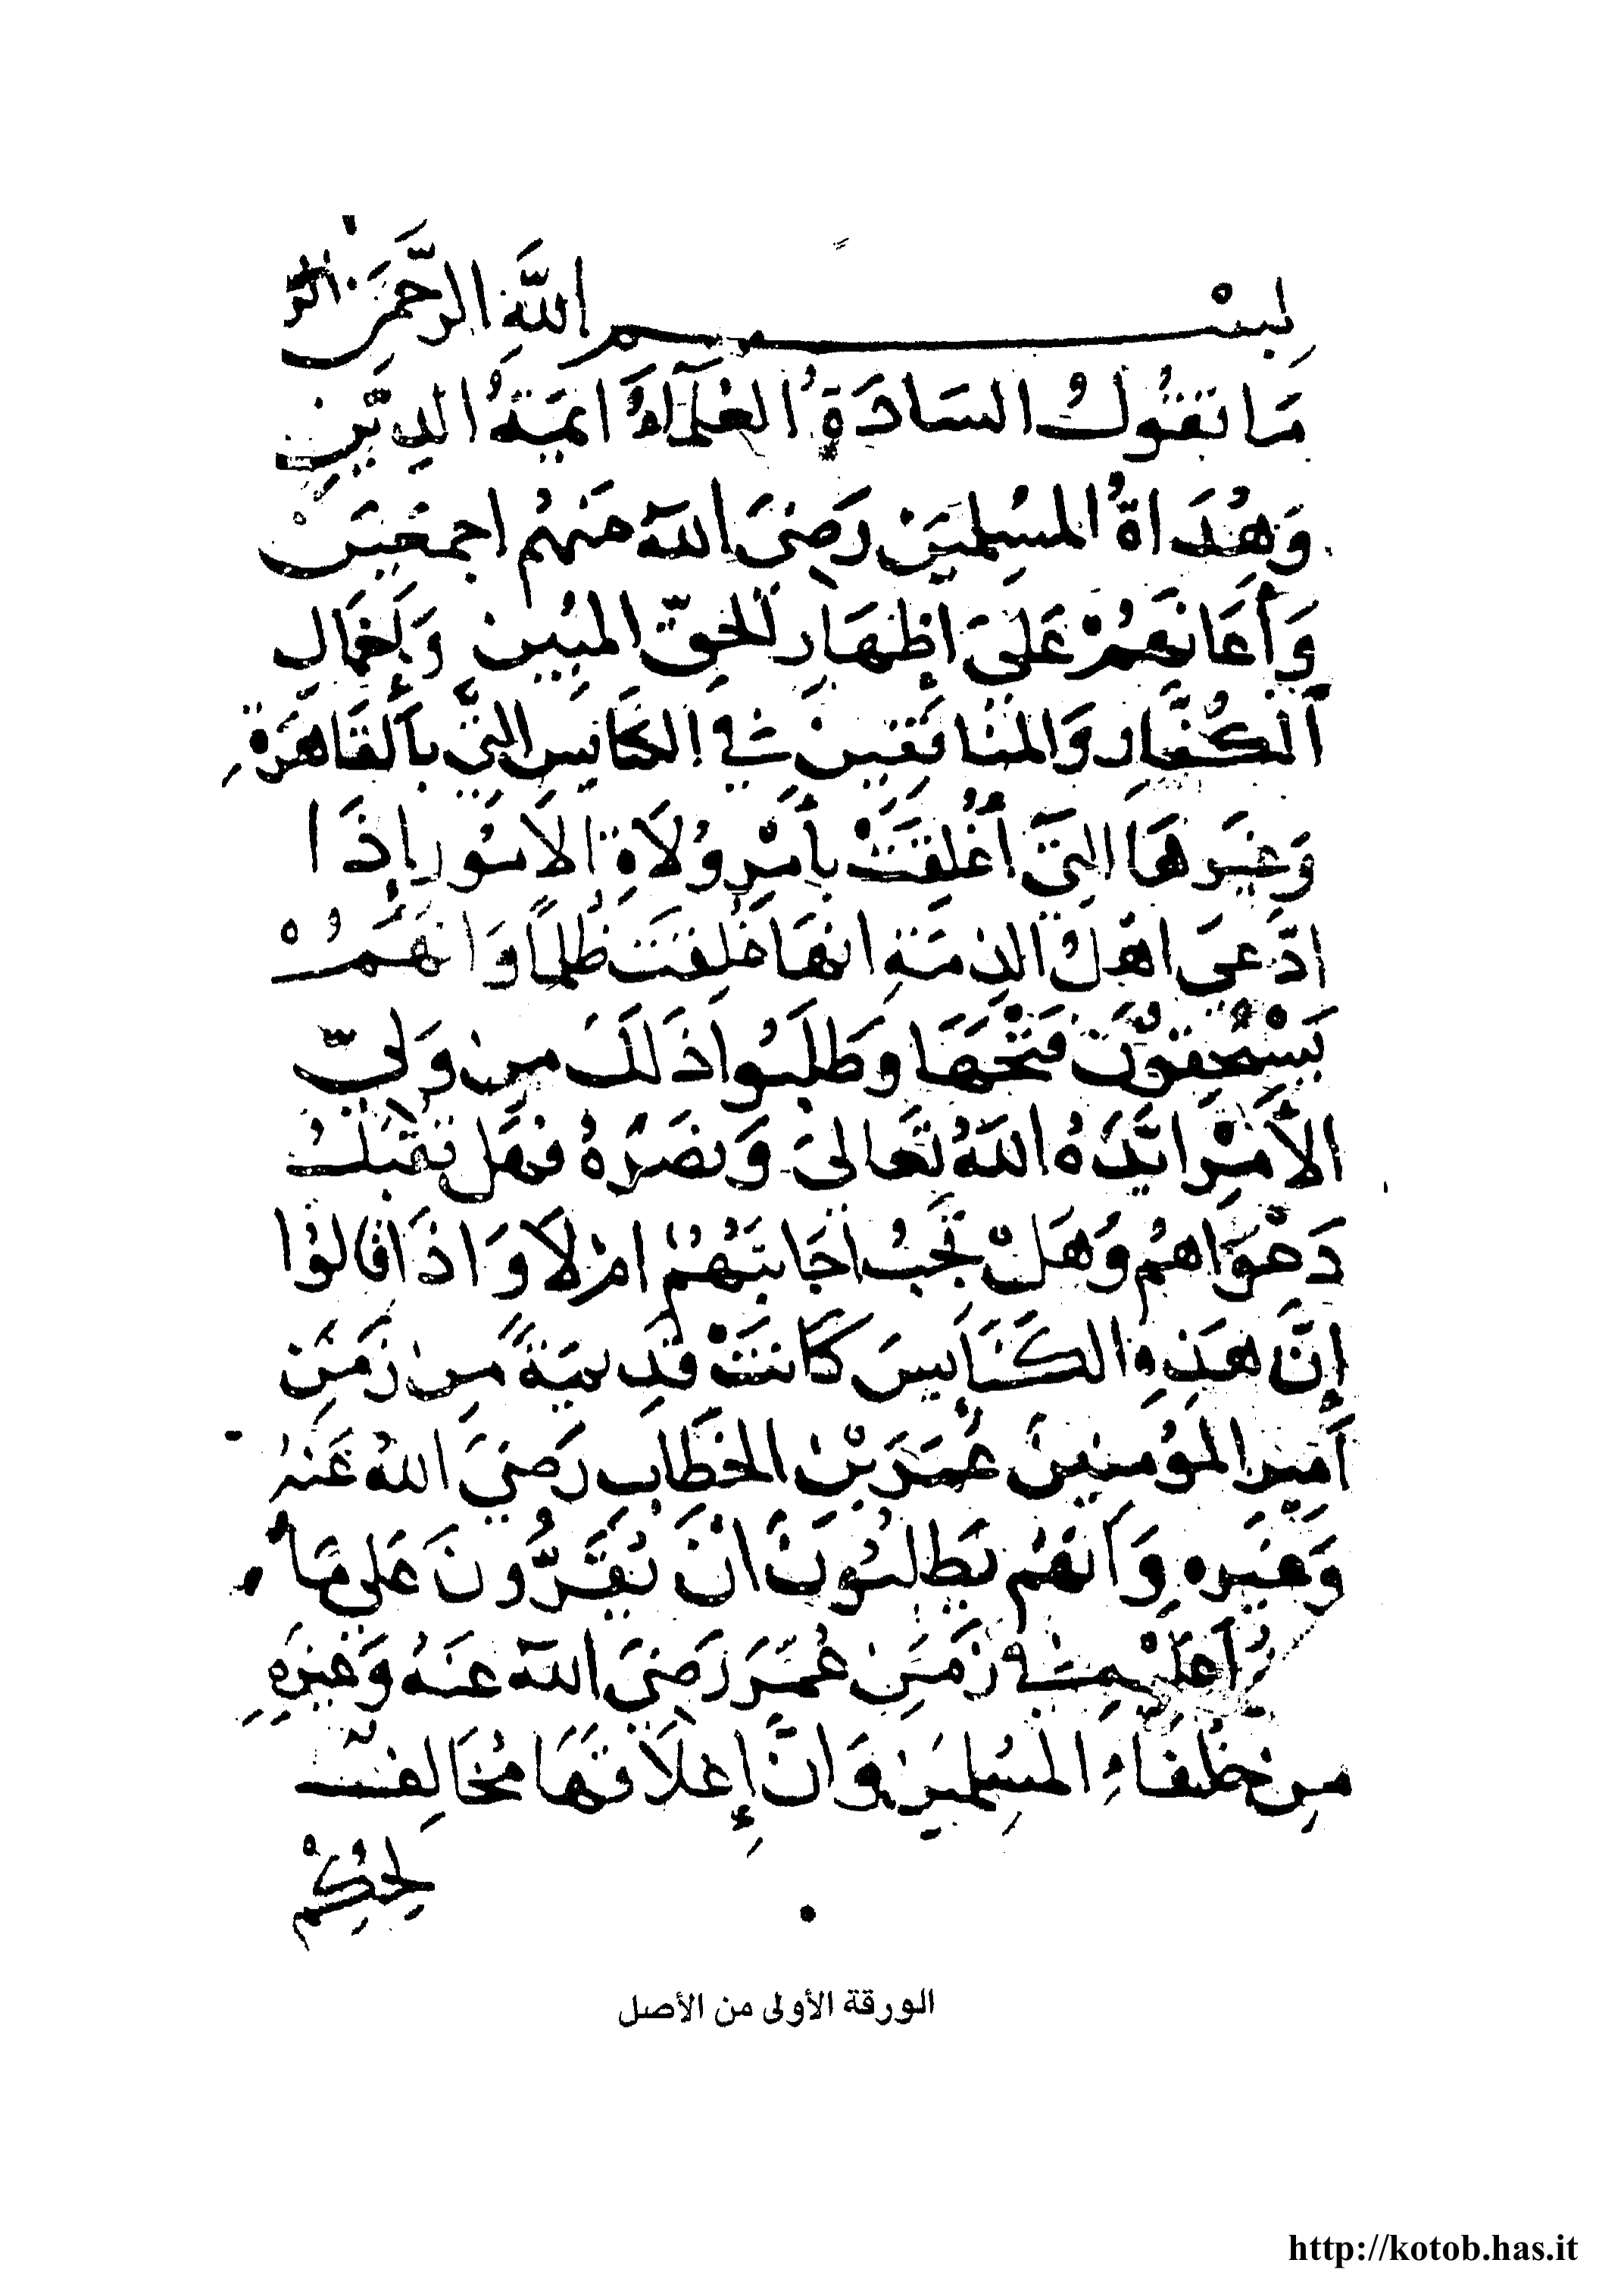 بِسْم اللَّهِ الرَّحْمَنِ
مَا تَقُولُ السَادَةُ العُلَمَآءُ ايمَةُ الدِيّنِ
وَهُدَاةُ المُسِلميَن رَضِىَ اللهُ عَنهُم اجمعَيَن
وَأَعَانَهُمْ عَلَىَ إظهَارِ الحَقِّ المُبِين وَإخمَالِ
الكُفَّارِ وَالمُنَافِقين فِي الكَنَايسِ التِّي بالقَاهَرَةِ
وَغَيرهَا التِيَ أُغلِقَتْ بِأَمْرِ وُلَاةِ الاَمُورِ إِذَا
ادَّعىَ اهَلُ الذِمَةِ انهَا غُلِقَت ظُلمًا وَانهَمُ
يَسْتَحِقوُّنَ فَتْحَهَا وَطَلَبُوا ذَلَكَ مِن وَليِّ
الاَمْرِ ايَّدَهُ اللهُ تَعَالىَ وَنصَرَهُ فهَل تقبَلُ
دَعْوَاهُم وَهَلْ تَجبُ اجَابَتَهُمْ امْ لاَ وَاذَا قَالوُا
إنَّ هَذِهِ الكَنَايسَ كَانَتْ قدِيمَةً مِن زَمَن
أَمِير المُؤمنيِنَ عُمَرَ بْن الخَطَّابِ رَضيَ اللهُ عَنهُ
وَغيَره وَأنهُم يَطلُبُونَ انْ يُقَرُّونَ عَلي مَا
اَعَلَيْهِ في زَمَنِ عُمَرَ رَضيَ اللهُ عنَهُ وَغيَرِهِ
مِن خُلفَاءِ المُسِلميَن وَانَّ إِغلَاقَهَا مُخَالِفٌ
لِحُكْمِ
الورقة الأولى من الأصل
http://kotob.has.it